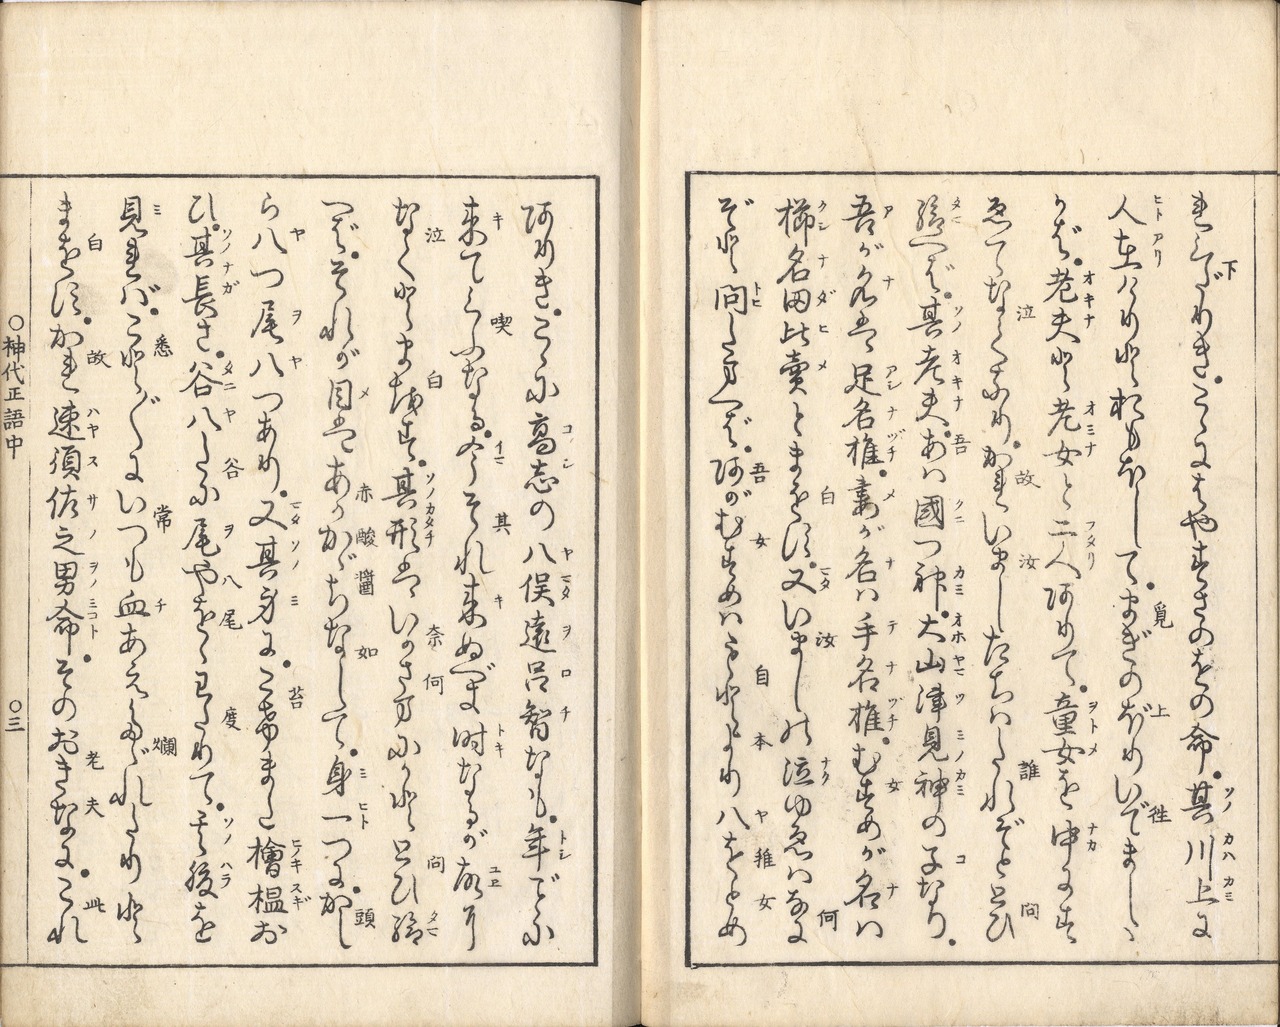 れくだりきこゝにはやすさのをの命其川上に
人在けりとおもほしてまぎのぼりいでましゝ
かば老夫と老女と二人ありて童女を中にす
ゑてなくなりかれいましたちはたれぞととひ
給へば其老夫あは國つ神大山津見神の子なり
吾が名は足名椎妻が名は手名椎むすめが名は
櫛名田比賣とまをす又いましの泣ゆゑはなに
ぞと問たまへばあがむすめはもとより八をとめ
ありきこゝに高志の八俣遠呂智なも年ごとに
来てくふなる今それ来ぬべき時なるが故に
なくとまをす其形はいかさまにかととひ給
へばそれが目はあかゞちなして身一つにかし
ら八つ尾八つあり又其身にこけまた檜榲お
ひ其長さ谷八たに尾やをゝわたりて其腹を
見ればことごとにいつも血あえたゞれたりと
まをすかれ速須佐之男命そのおきなにこれ
○神代正語中 ○三